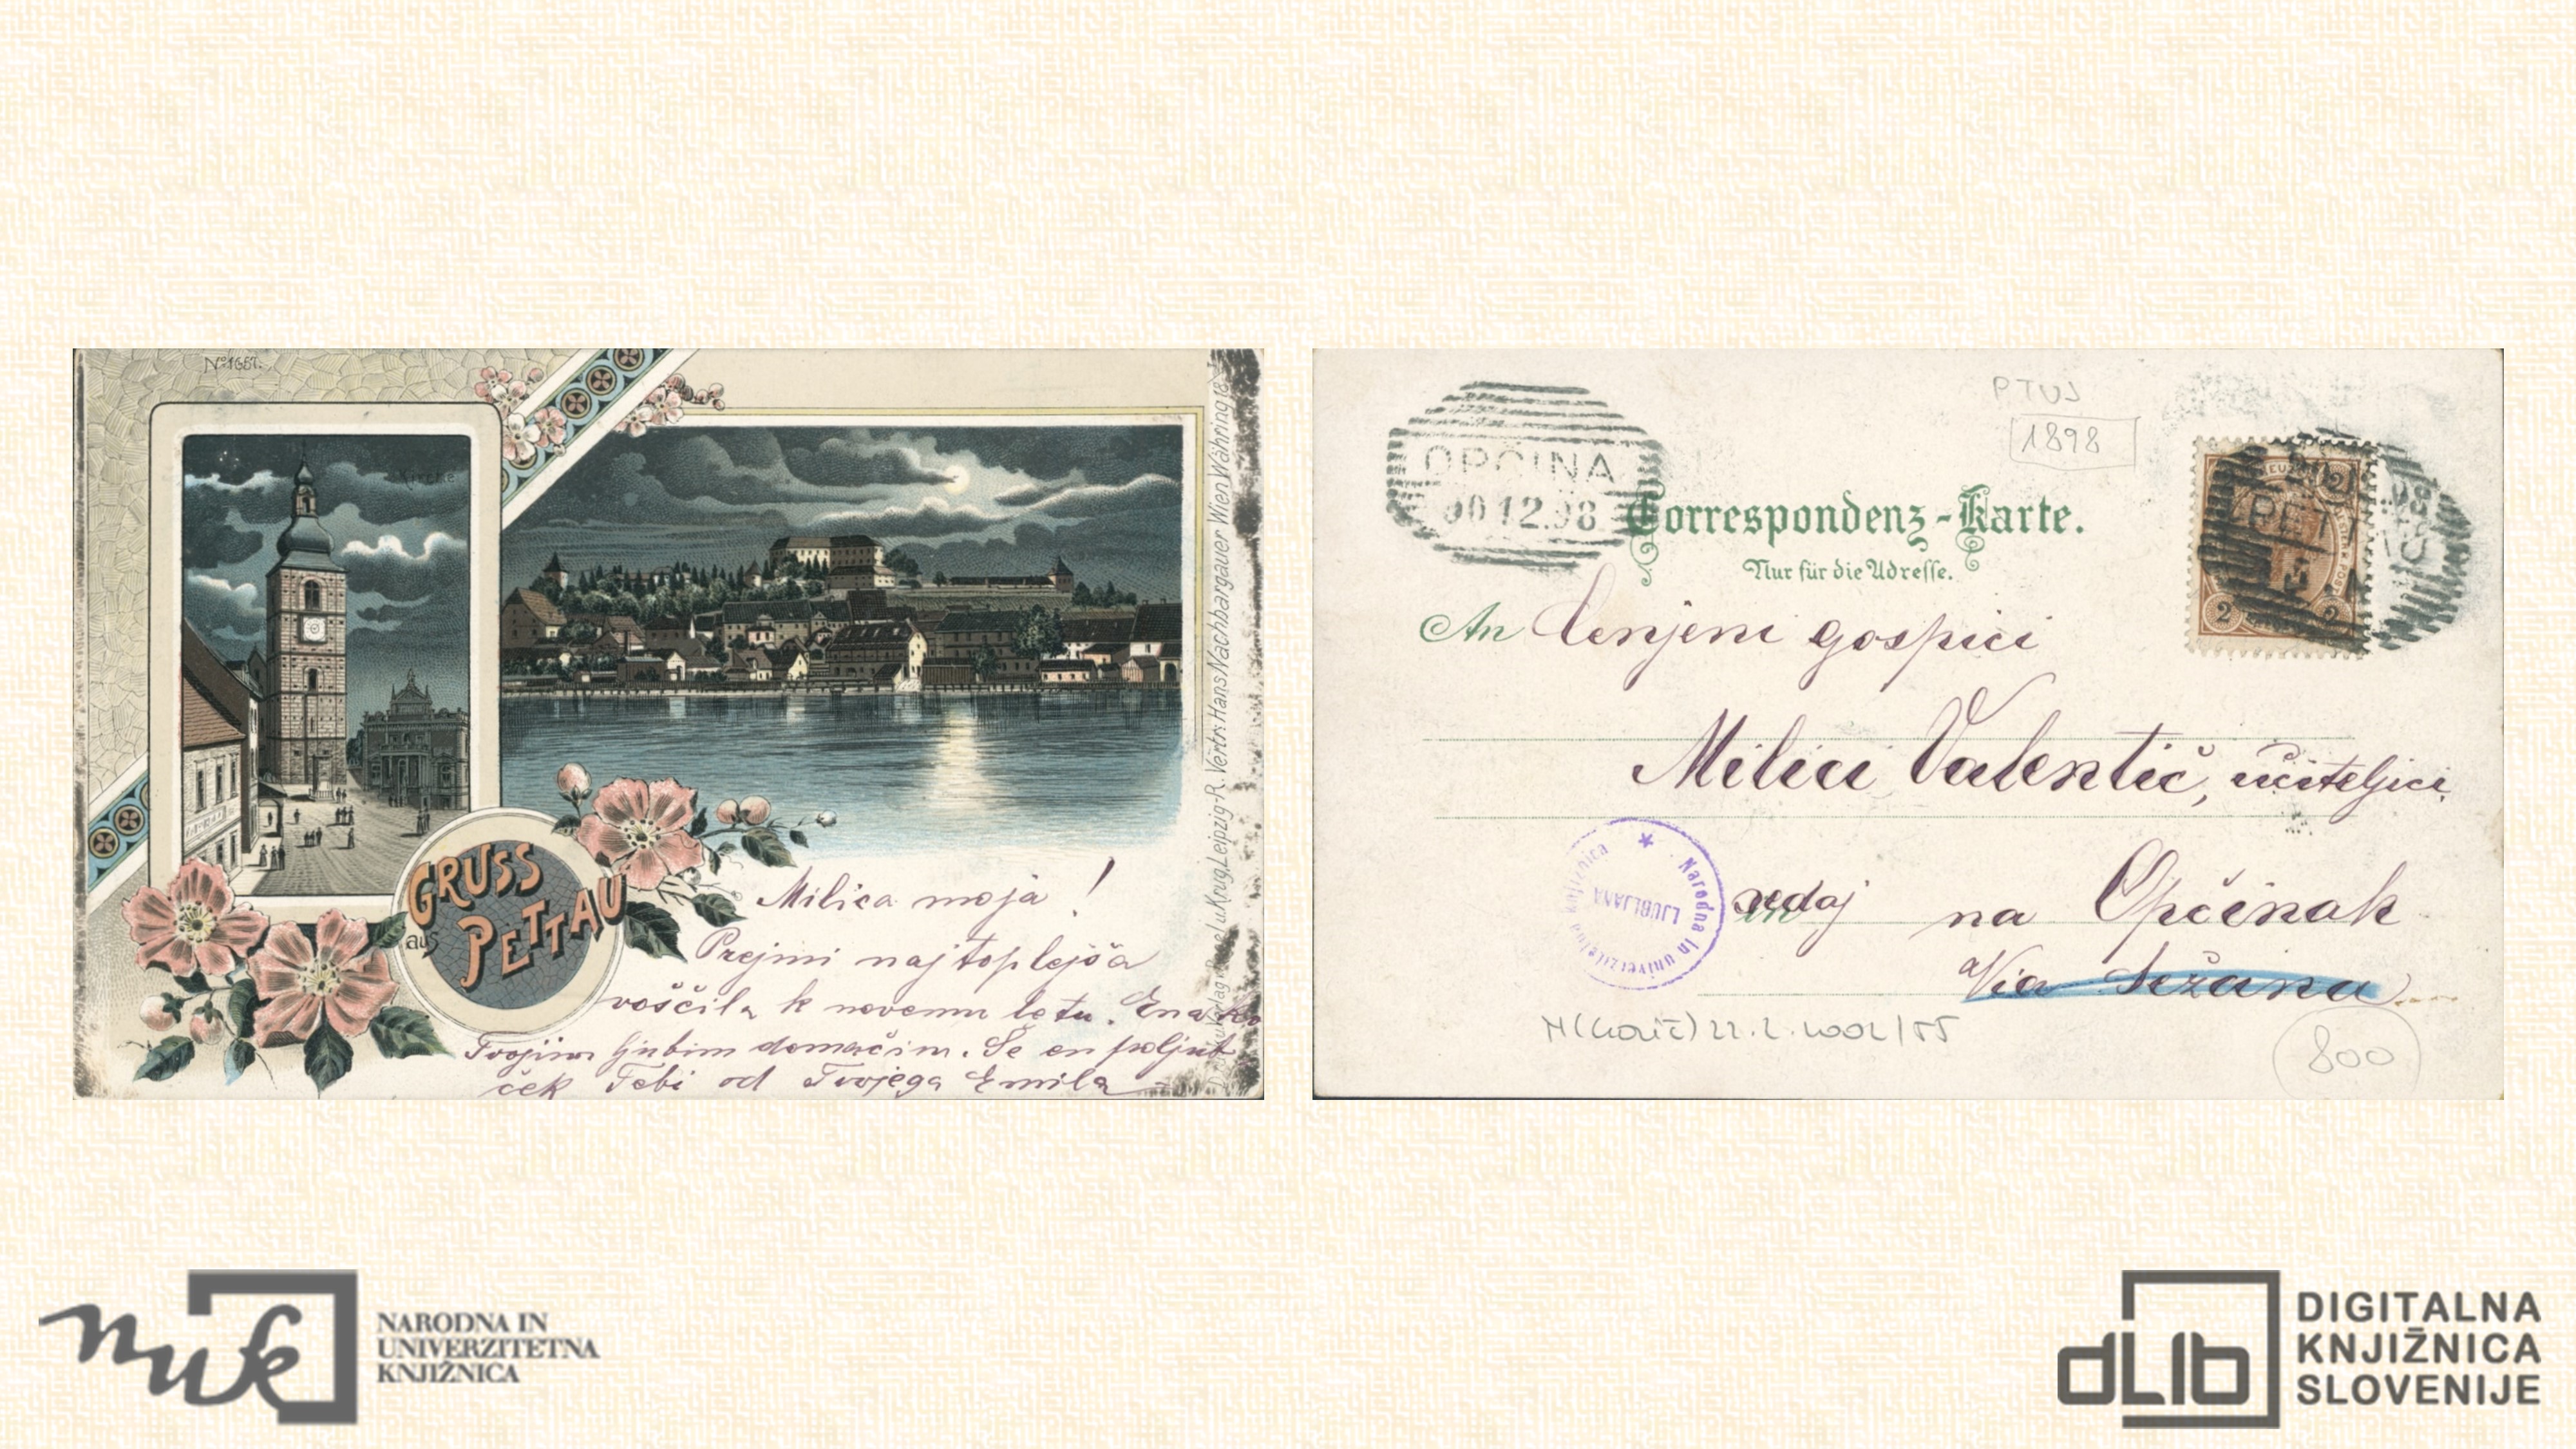 No 1687.
Kirche
GRUSS
aus
PETTAU
Hans Nachbargauer Wien Währing
Milica moja!
Prejmi najtoplejša
voščila k novemu letu. Enako
Tvojim ljubim domačim. Še en poljub
ček Tebi od Tvojega Emila
PTUJ
1898
OPČINA
30.12.98
2
PETT
2 2
Correspondenz-Karte.
Nur für die Adresse.
An Cenjeni gospici
Milici Valentič, učiteljici
Narodna in univerzitetna knjižnica
LJUBLJANA
sedaj na Opčinah
Via Sežana
22.2.2002/55
800
nuk
NARODNA IN
UNIVERZITETNA
KNJIŽNICA
dLib
DIGITALNA
KNJIŽNICA
SLOVENIJE